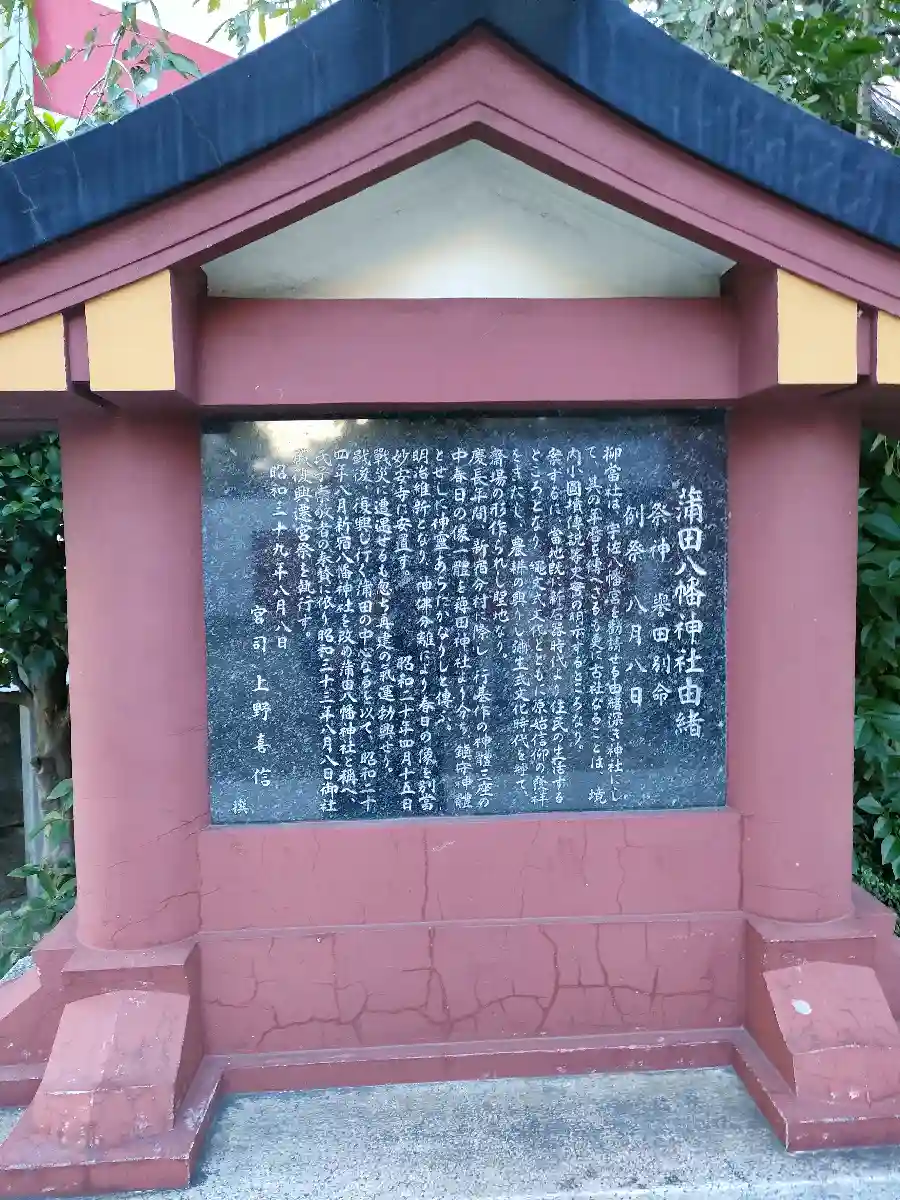 蒲田八幡神社由緒
祭神 誉田別命
例祭 八月八日
抑當社は、宇佐八幡宮を勧請せる由緒深き神社にし
て、其の年暦を傳へざるも夐に古社なることは、境
内小圓墳傳説等史實の明示するところなり。
案ずるに、當地既に新石器時代より住民の生活する
ところとなり、縄文式文化とともに原始信仰の發祥
をきたし、農耕の興りし弥生式文化時代を経て、
齋場の形作られし聖地なり。
慶長年間、新宿分村に際し、行基作の神體三座の
中春日の像一體を稗田神社より分ち、鎮守神體
とせしに神霊あらたかなりしと傳へらる。
明治維新となり、神佛分離により春日の像を別當
妙安寺に安置す。 昭和二十年四月十五日
戰災に遭遇せるも忽ち再建の氣運勃興せり。
戰後、復興し行く蒲田の中心なるを以て、昭和二十
四年八月新宿八幡神社を改め蒲田八幡神社と稱へ、
氏子崇敬者の奉賛に依り昭和三十三年八月八日御社
殿復興遷宮祭を執行す。
昭和三十九年八月八日
宮司 上野喜信 撰